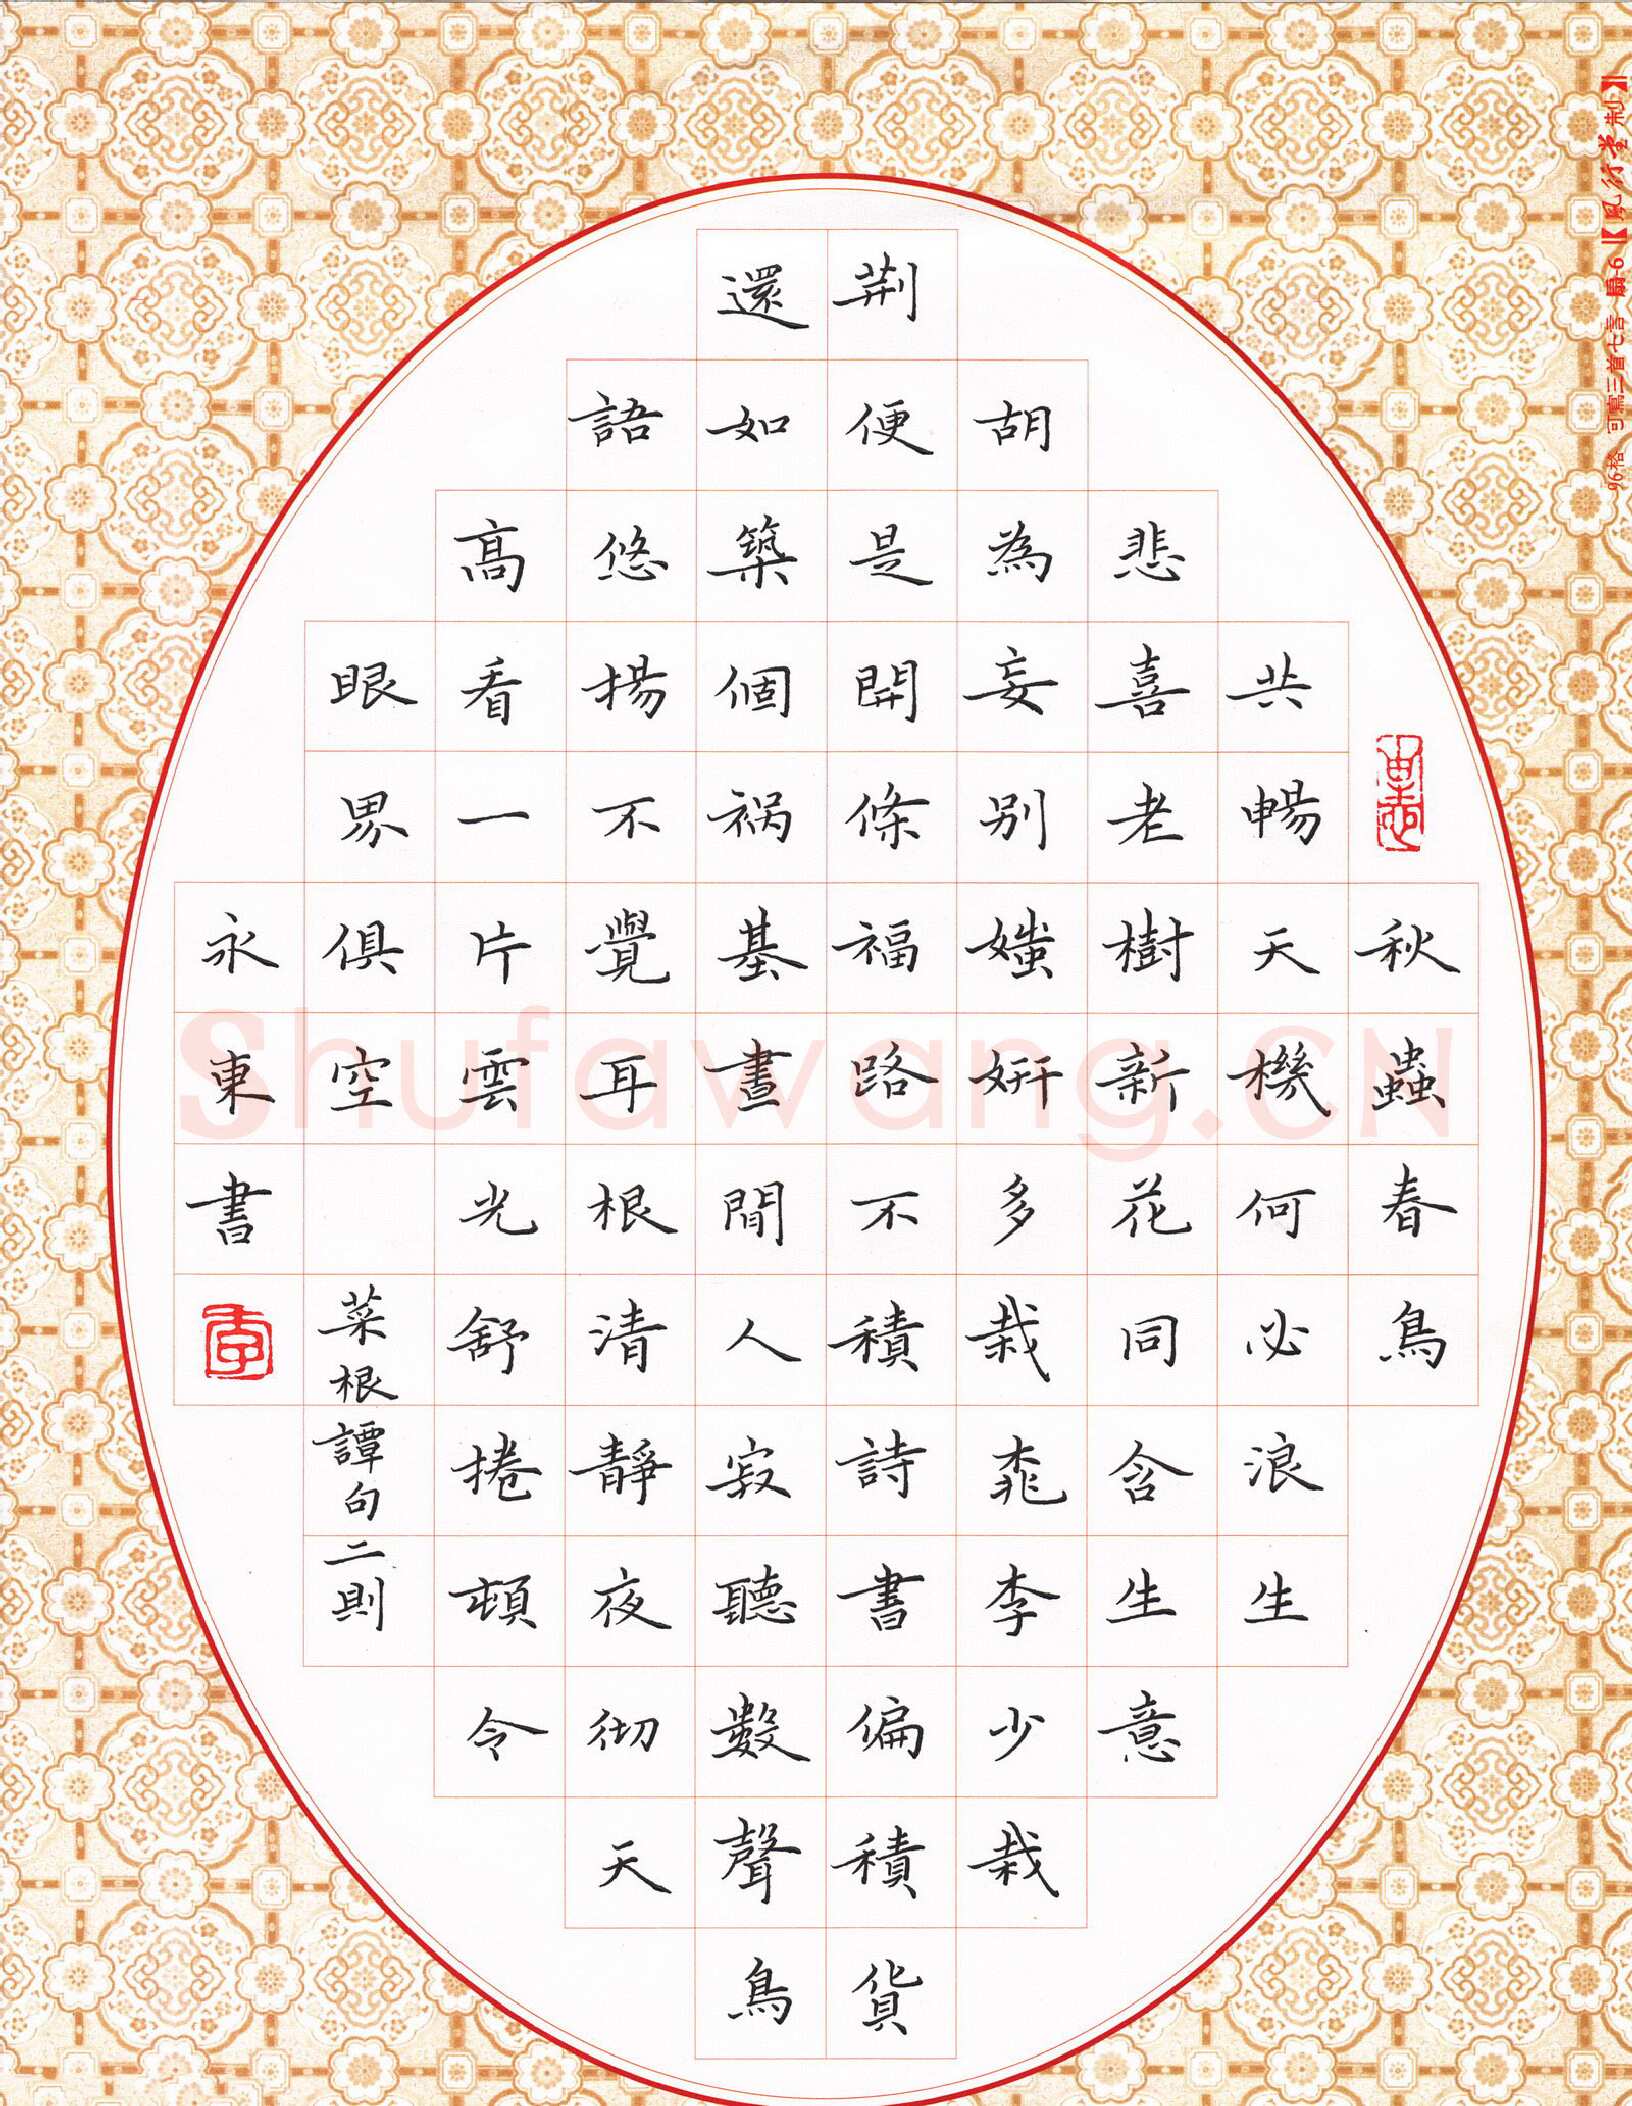 秋蟲春鳥
共暢天機何必浪生
悲喜老樹新花同含生意
胡為妄別媸妍多栽桃李少栽
荆便是開條福路不積詩書偏積貨
還如築個祸基晝閒人寂聽數聲鳥
語悠揚不覺耳根清靜夜彻天
高看一片雲光舒捲頓令
眼界俱空 菜根譚句二則
永東書
李
96格 可寫三首七言 扇-6【風行堂制】
Shufawang.CN